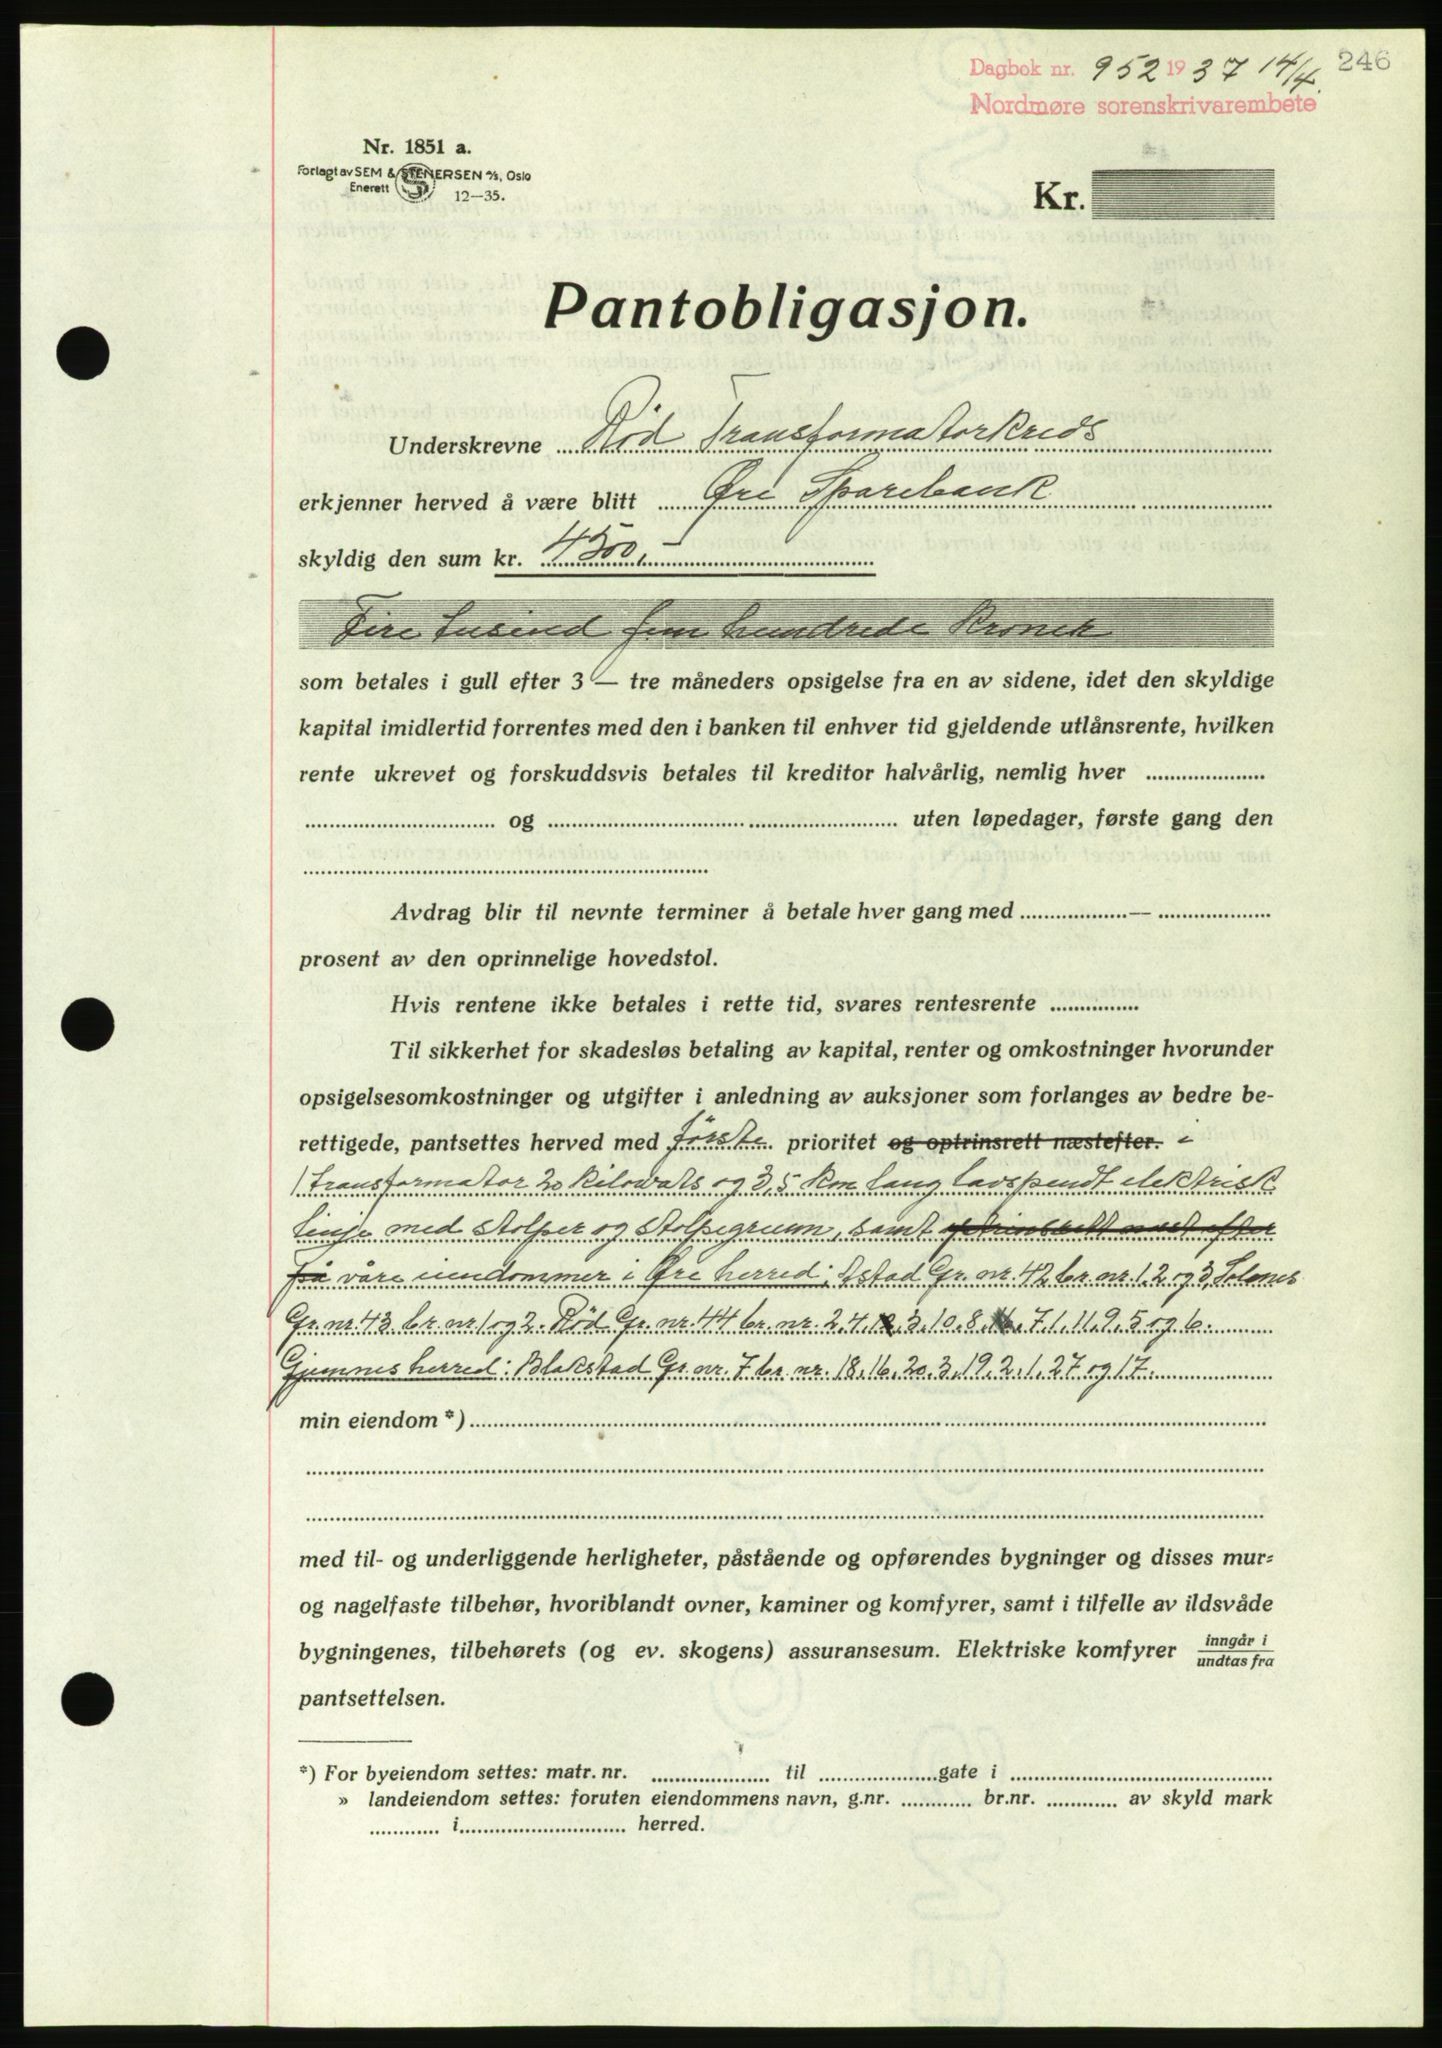 Dagbok nr. 952 1937 14/4. 246
Nordmøre sorenskrivarembete
Nr. 1851 a.
Forlagt av SEM & STENERSEN A/S, Oslo
Enerett
12—35.
Kr.
Pantobligasjon.
Underskrevne Rød Transformatorkreds
erkjenner herved å være blitt Øre Sparebank
skyldig den sum kr. 4500,-
Fire tusind fem hundrede kroner
som betales i gull efter 3 — tre måneders opsigelse fra en av sidene, idet den skyldige
kapital imidlertid forrentes med den i banken til enhver tid gjeldende utlånsrente, hvilken
rente ukrevet og forskuddsvis betales til kreditor halvårlig, nemlig hver
og uten løpedager, første gang den
Avdrag blir til nevnte terminer å betale hver gang med —
prosent av den oprinnelige hovedstol.
Hvis rentene ikke betales i rette tid, svares rentesrente
Til sikkerhet for skadesløs betaling av kapital, renter og omkostninger hvorunder
opsigelsesomkostninger og utgifter i anledning av auksjoner som forlanges av bedre be-
rettigede, pantsettes herved med første prioritet og optrinsrett næstefter. i
1 transformator 20 kilowats og 3,5 km lang lavspendt elektrisk
linje med stolper og stolpegrunn, samt optrinsrett næst efter
på våre eiendommer i Øre herred: Astad Gr. nr. 42 br. nr. 1, 2 og 3, Solsnes
Gr. nr. 43 br. nr. 1 og 2. Rød Gr. nr. 44 br. nr. 2, 4, 3, 10, 8, 7, 1, 11, 9, 5 og 6.
Gjemnes herred: Blakstad Gr. nr. 7 br. nr. 18, 16, 20, 3, 19, 2, 1, 27 og 17.
min eiendom *)
med til- og underliggende herligheter, påstående og opførendes bygninger og disses mur-
og nagelfaste tilbehør, hvoriblandt ovner, kaminer og komfyrer, samt i tilfelle av ildsvåde
bygningenes, tilbehørets (og ev. skogens) assuransesum. Elektriske komfyrer inngår i
undtas fra
pantsettelsen.
*) For byeiendom settes: matr. nr. til gate i
» landeiendom settes: foruten eiendommens navn, g.nr. br.nr. av skyld mark
i herred.